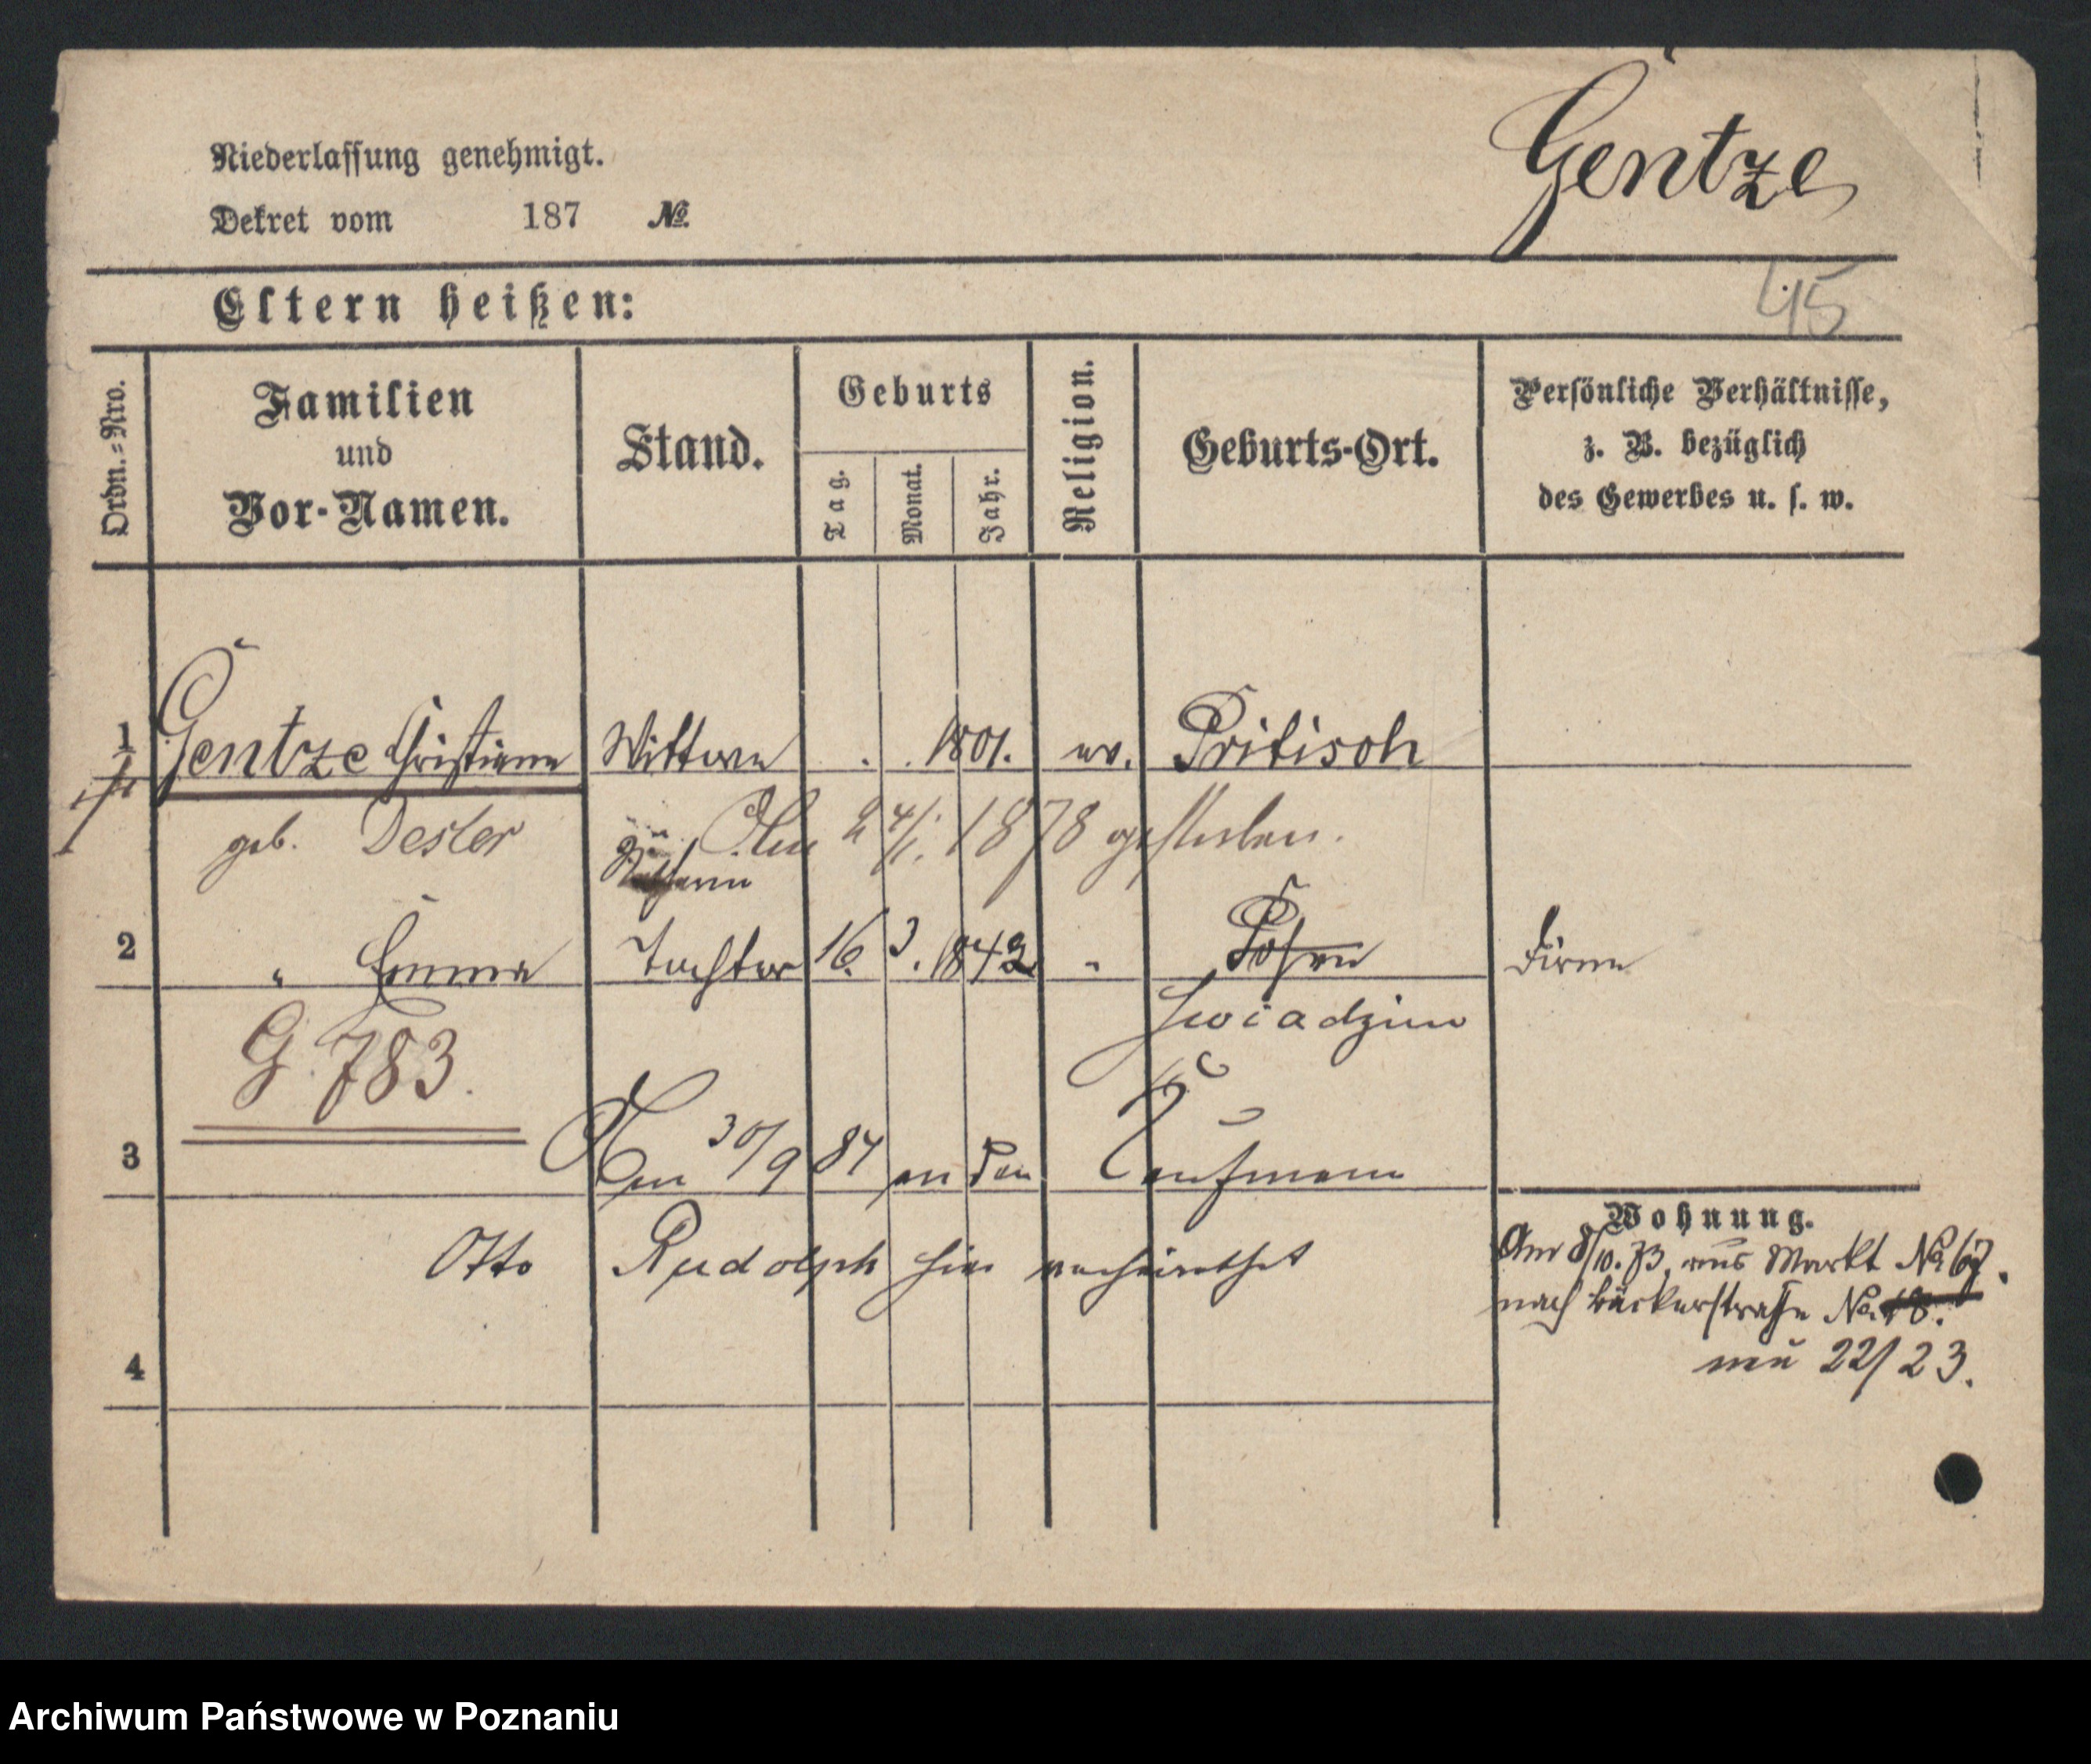 Gentze
Niederlassung genehmigt.
Dekret vom 187 №
45
Eltern heißen:
Ordn.-Nro. Familien und Vor-Namen. Stand. Geburts Tag. Monat. Jahr. Religion. Geburts-Ort. Persönliche Verhältnisse, z. B. bezüglich des Gewerbes u. s. w.
1 Gentze Christiane Wittwe . . 1801. ev. Pritisch
geb. Desler Am 24/1. 1878 gestorben.
2 " Emma Tochter 16. 3. 1842 " Posen
Gwiadzim
G. 783.
3 Am 30/9 84 an den Kaufmann
Otto Rudolph hier verheirathet
Wohnung.
Am 8/10. 73. aus Markt No 67.
nach Bäckerstraße No. 18.
neu 22/23.
4
Archiwum Państwowe w Poznaniu